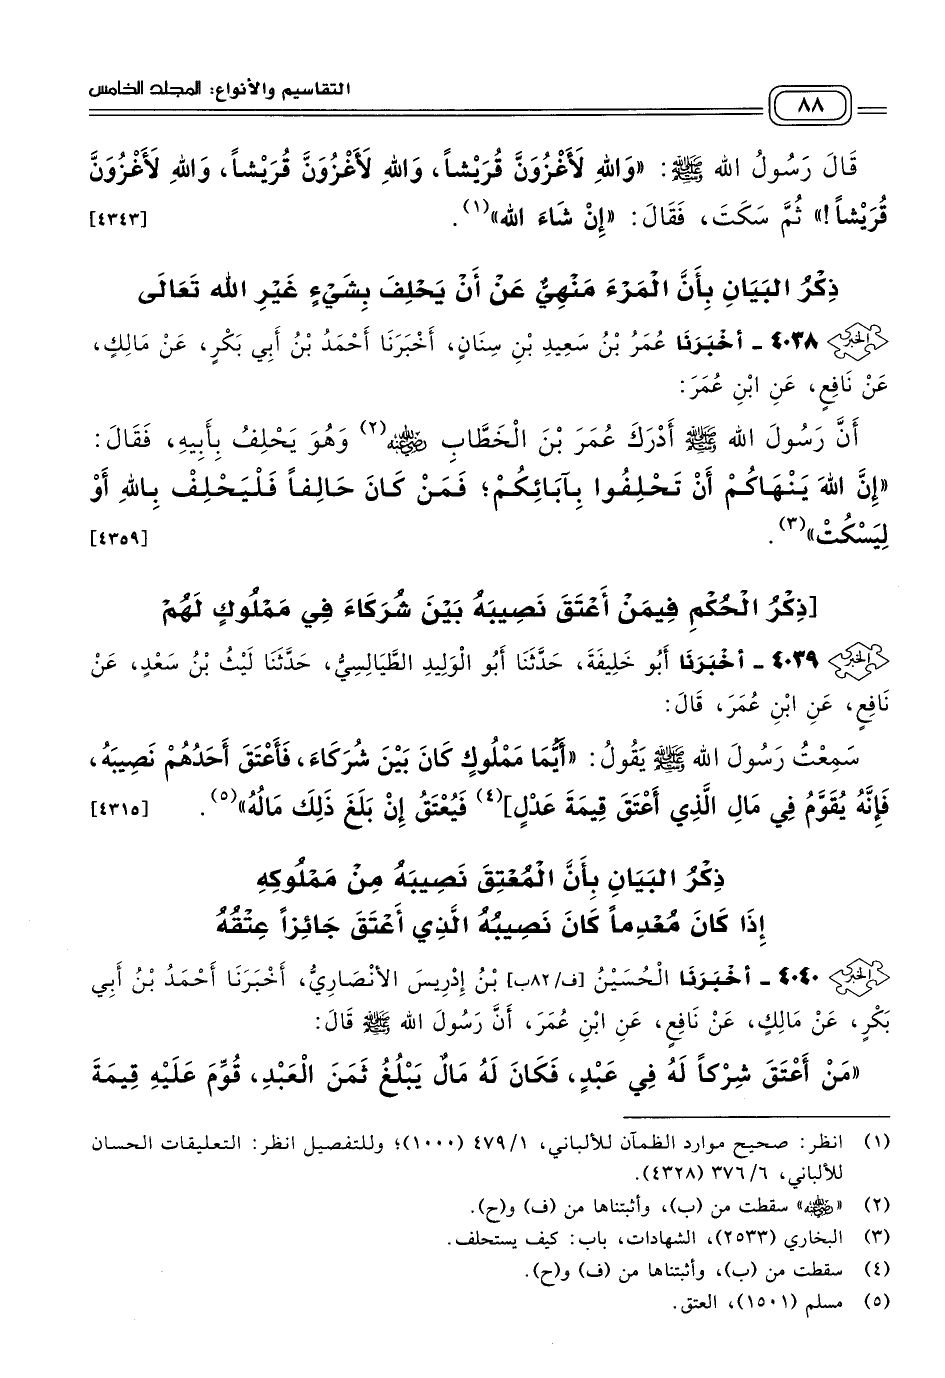 التقاسيم والأنواع: المجلد الخامس
٨٨
قَالَ رَسُولُ اللهِ ﷺ: «وَاللهِ لَأَغْزُوَنَّ قُرَيْشاً، وَاللهِ لَأَغْزُوَنَّ قُرَيْشاً، وَاللهِ لَأَغْزُوَنَّ
قُرَيْشاً!» ثُمَّ سَكَتَ، فَقَالَ: «إِنْ شَاءَ اللهُ»(١). [٤٣٤٣]
ذِكْرُ البَيَانِ بِأَنَّ الْمَرْءَ مَنْهِيٌّ عَنْ أَنْ يَحْلِفَ بِشَيْءٍ غَيْرِ اللهِ تَعَالَى
٤٠٣٨ - أَخْبَرَنَا عُمَرُ بْنُ سَعِيدِ بْنِ سِنَانٍ، أَخْبَرَنَا أَحْمَدُ بْنُ أَبِي بَكْرٍ، عَنْ مَالِكٍ،
عَنْ نَافِعٍ، عَنِ ابْنِ عُمَرَ:
أَنَّ رَسُولَ اللهِ ﷺ أَدْرَكَ عُمَرَ بْنَ الْخَطَّابِ رضي الله عنه(٢) وَهُوَ يَحْلِفُ بِأَبِيهِ، فَقَالَ:
«إِنَّ اللهَ يَنْهَاكُمْ أَنْ تَحْلِفُوا بِآبَائِكُمْ؛ فَمَنْ كَانَ حَالِفاً فَلْيَحْلِفْ بِاللهِ أَوْ
لِيَسْكُتْ»(٣). [٤٣٥٩]
[ذِكْرُ الْحُكْمِ فِيمَنْ أَعْتَقَ نَصِيبَهُ بَيْنَ شُرَكَاءَ فِي مَمْلُوكٍ لَهُمْ
٤٠٣٩ - أَخْبَرَنَا أَبُو خَلِيفَةَ، حَدَّثَنَا أَبُو الْوَلِيدِ الطَّيَالِسِيُّ، حَدَّثَنَا لَيْثُ بْنُ سَعْدٍ، عَنْ
نَافِعٍ، عَنِ ابْنِ عُمَرَ، قَالَ:
سَمِعْتُ رَسُولَ اللهِ ﷺ يَقُولُ: «أَيُّمَا مَمْلُوكٍ كَانَ بَيْنَ شُرَكَاءَ، فَأَعْتَقَ أَحَدُهُمْ نَصِيبَهُ،
فَإِنَّهُ يُقَوَّمُ فِي مَالِ الَّذِي أَعْتَقَ قِيمَةَ عَدْلٍ](٤) فَيُعْتَقُ إِنْ بَلَغَ ذَلِكَ مَالُهُ»(٥). [٤٣١٥]
ذِكْرُ البَيَانِ بِأَنَّ الْمُعْتِقَ نَصِيبَهُ مِنْ مَمْلُوكِهِ
إِذَا كَانَ مُعْدِماً كَانَ نَصِيبُهُ الَّذِي أَعْتَقَ جَائِزاً عِتْقُهُ
٤٠٤٠ - أَخْبَرَنَا الْحُسَيْنُ [ف/٨٢ب] بْنُ إِدْرِيسَ الأَنْصَارِيُّ، أَخْبَرَنَا أَحْمَدُ بْنُ أَبِي
بَكْرٍ، عَنْ مَالِكٍ، عَنْ نَافِعٍ، عَنِ ابْنِ عُمَرَ، أَنَّ رَسُولَ اللهِ ﷺ قَالَ:
«مَنْ أَعْتَقَ شِرْكاً لَهُ فِي عَبْدٍ، فَكَانَ لَهُ مَالٌ يَبْلُغُ ثَمَنَ الْعَبْدِ، قُوِّمَ عَلَيْهِ قِيمَةَ
(١) انظر: صحيح موارد الظمآن للألباني، ٤٧٩/١ (١٠٠٠)؛ وللتفصيل انظر: التعليقات الحسان
للألباني، ٣٧٦/٦ (٤٣٢٨).
(٢) «رضي الله عنه» سقطت من (ب)، وأثبتناها من (ف) و(ح).
(٣) البخاري (٢٥٣٣)، الشهادات، باب: كيف يستحلف.
(٤) سقطت من (ب)، وأثبتناها من (ف) و(ح).
(٥) مسلم (١٥٠١)، العتق.